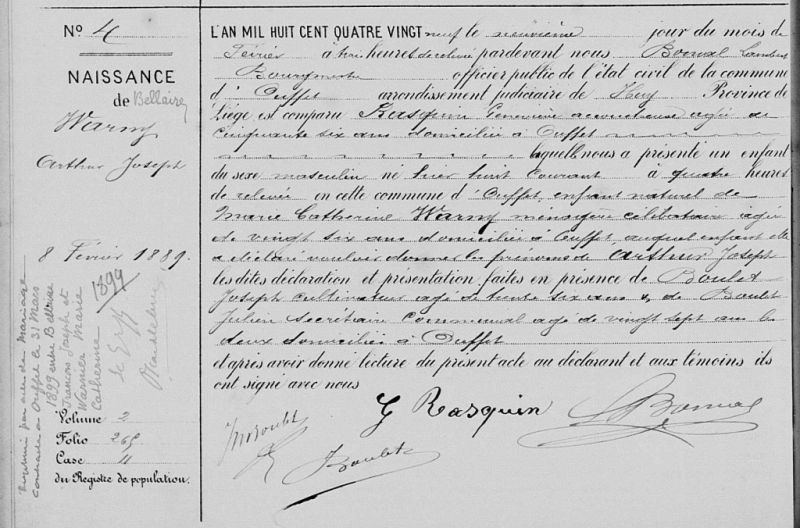 N° 4
NAISSANCE
de Bellaire
Warny
Arthur Joseph
8 Février 1889.
1899
le Greff
légitimé par acte de Mariage
contracté à Ouffet le 31 Mars
1899 entre Bellaire
François Joseph et
Warnier Marie
Catherine
Volume 2
Folio 265
Case 11
du Registre de population.
L'AN MIL HUIT CENT QUATRE VINGT neuf le neuvième jour du mois de
Février à trois heures de relevé pardevant nous Bonval Lambert
Bourgmestre officier public de l'état civil de la commune
d' Ouffet arrondissement judiciaire de Huy Province de
Liége est comparu Rasquin Geneviève accoucheuse agée de
cinquante six ans domiciliée à Ouffet
laquelle nous a présenté un enfant
du sexe masculin né hier huit courant à quatre heures
de relevée en cette commune d' Ouffet, enfant naturel de
Marie Catherine Warny ménagère célibataire agée
de vingt six ans domiciliée à Ouffet, auquel enfant elle
a déclaré vouloir donner les prénoms de Arthur Joseph
les dites déclaration et présentation faites en présence de Boulet
Joseph cultivateur agé de trente six ans & de Boulet
Julien Secrétaire Communal agé de vingt sept ans les
deux domiciliés à Ouffet
et après avoir donné lecture du présent acte au déclarant et aux témoins ils
ont signé avec nous
G Rasquin
LBonval
JBoulet
JBoulet